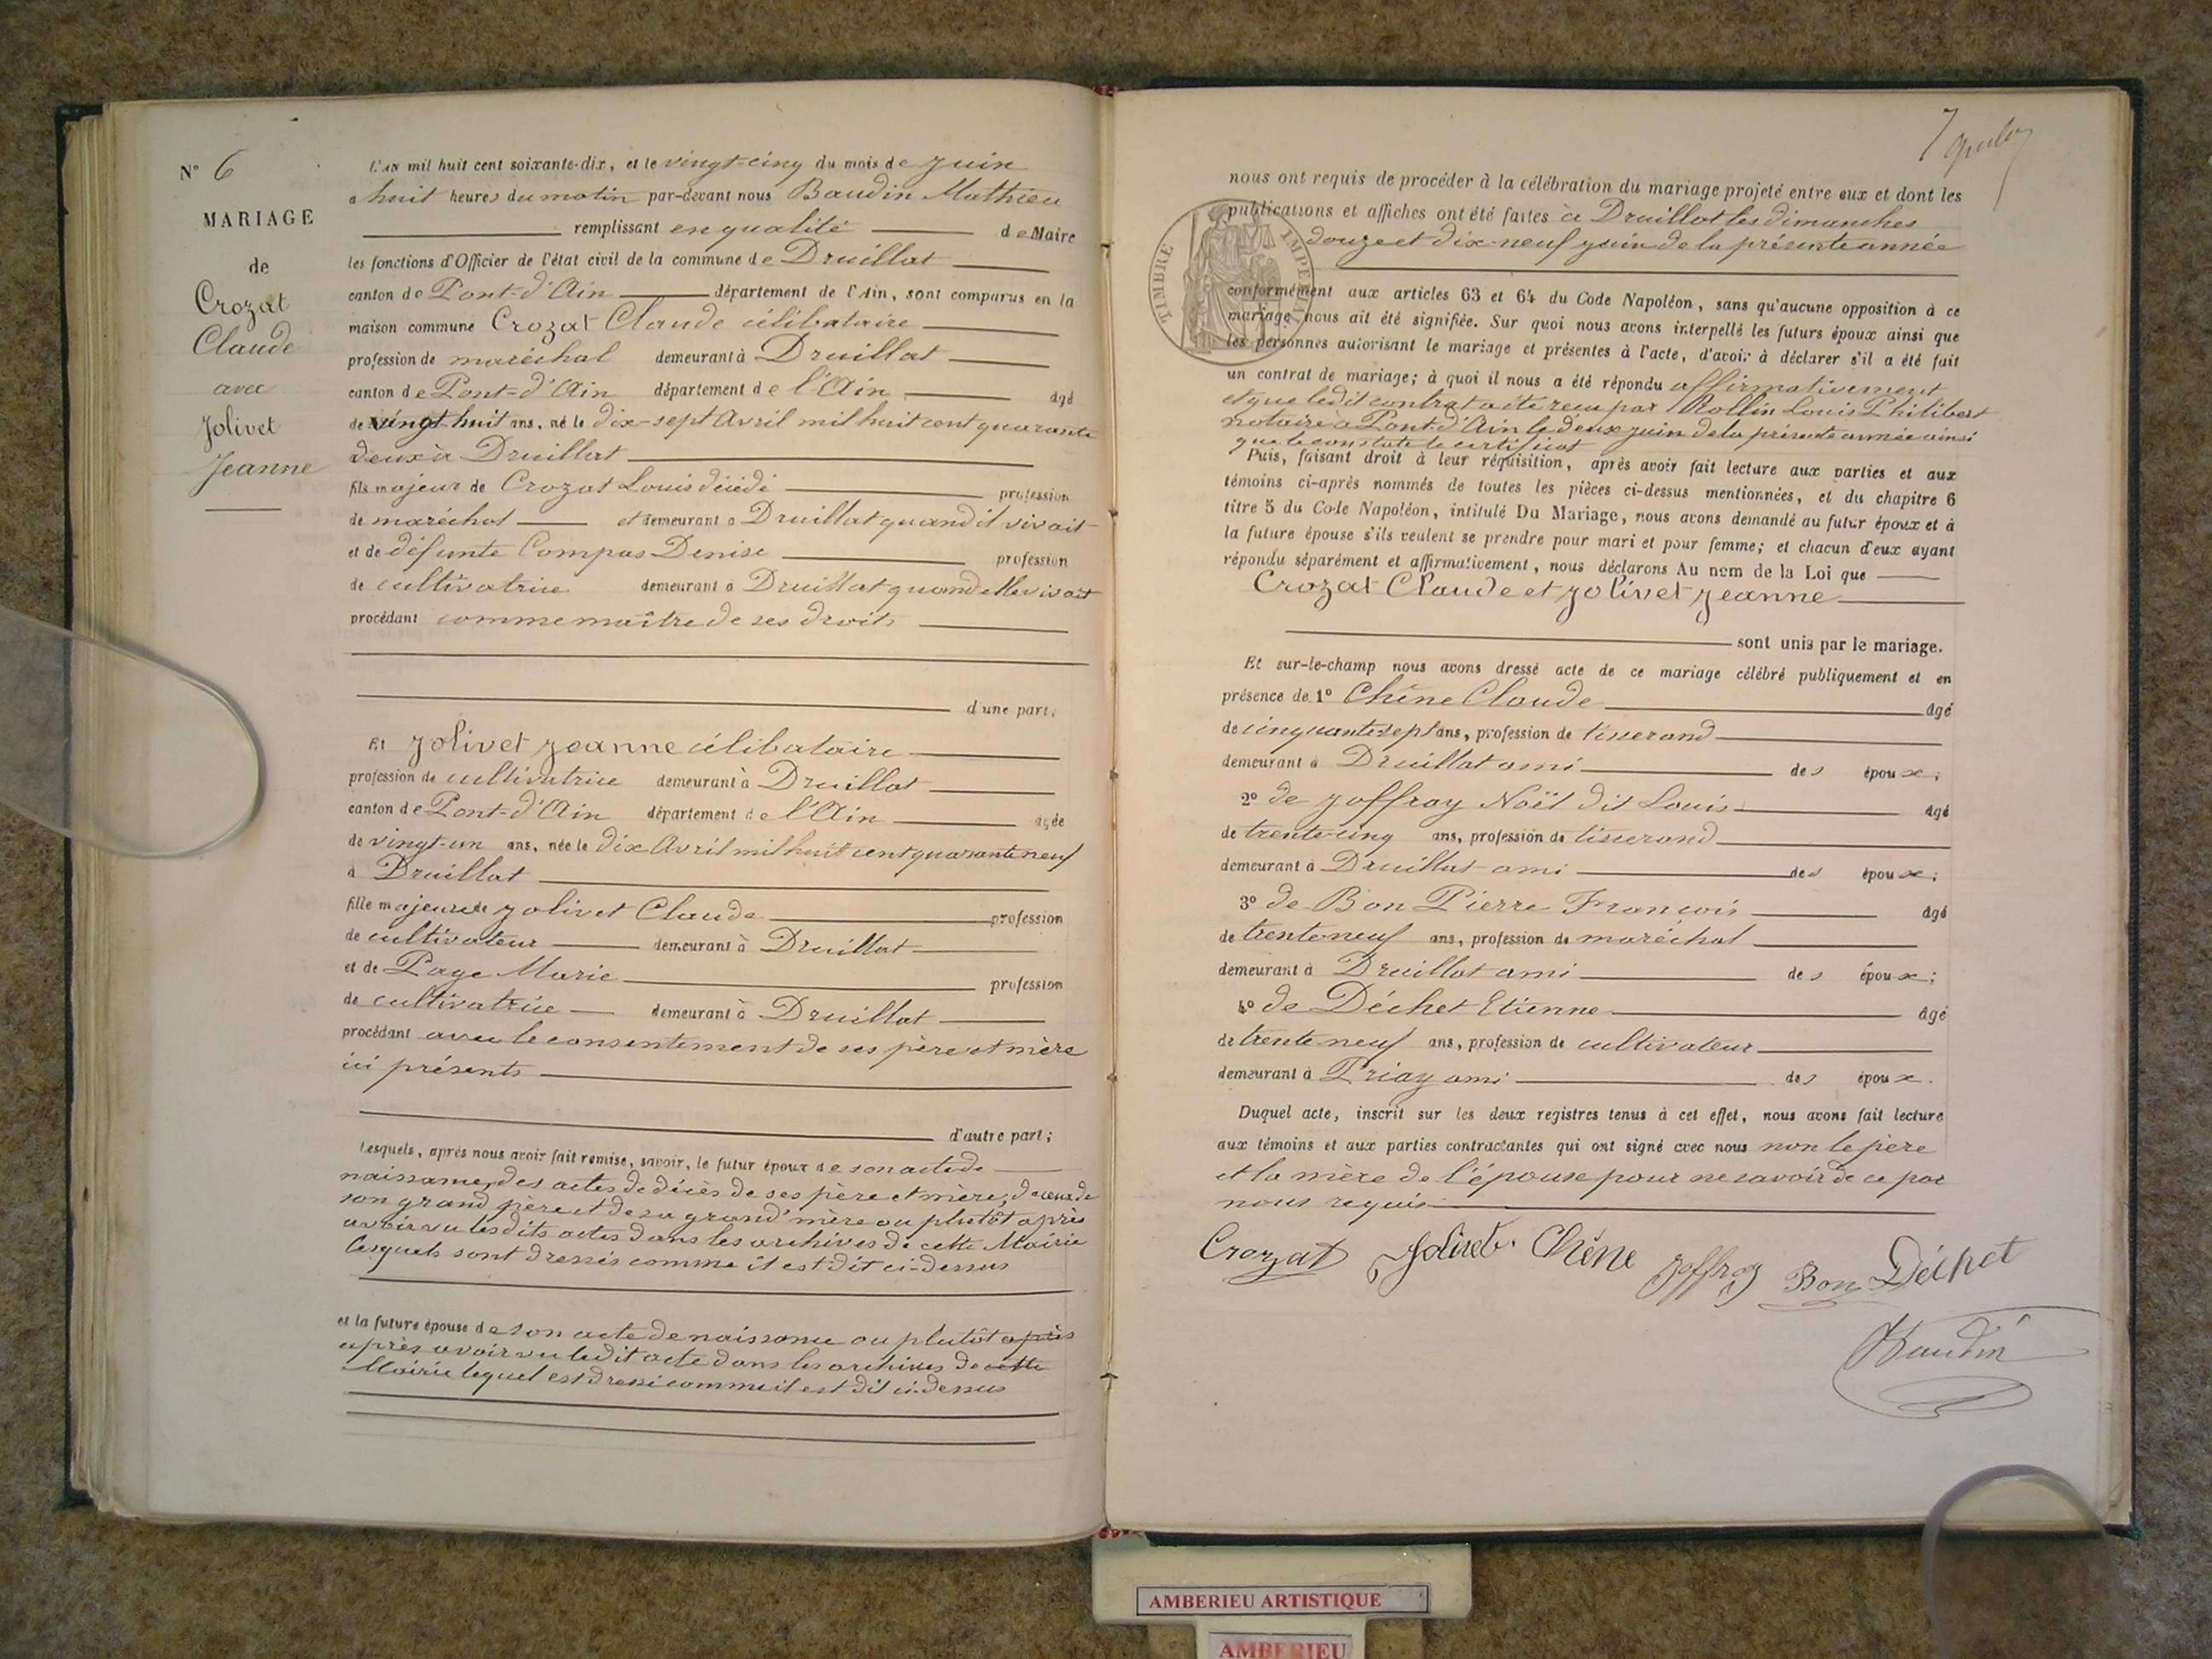 N° 6
MARIAGE
de
Crozat
Claude
avec
Jolivet
Jeanne
L'an mil huit cent soixante-dix, et le vingt-cinq du mois de Juin
a huit heures du matin par-devant nous Baudin Mathieu
remplissant en qualité de Maire
les fonctions d'Officier de l'état civil de la commune de Druillat
canton de Pont-d'Ain département de l'Ain, sont comparus en la
maison commune Crozat Claude célibataire
profession de maréchal demeurant à Druillat
canton de Pont-d'Ain département de l'Ain âgé
de vingt-huit ans, né le dix-sept Avril mil huit cent quarante
deux à Druillat
fils majeur de Crozat Louis décédé profession
de maréchal et demeurant à Druillat quand il vivait
et de défunte Compas Denise profession
de cultivatrice demeurant à Druillat quand elle vivait
procédant comme maître de ses droits
d'une part;
Et Jolivet Jeanne célibataire
profession de cultivatrice demeurant à Druillat
canton de Pont-d'Ain département de l'Ain agée
de vingt-un ans, née le dix Avril mil huit cent quarante neuf
à Druillat
fille majeure de Jolivet Claude profession
de cultivateur demeurant à Druillat
et de Page Marie profession
de cultivatrice demeurant à Druillat
procédant avec le consentement de ses père et mère
ici présents
d'autre part;
Lesquels, après nous avoir fait remise, savoir, le futur époux de son acte de
naissance, des actes de décès de ses père et mère, de ceux de
son grand père et de sa grand'mère ou plutôt après
avoir vu lesdits actes dans les archives de cette Mairie
lesquels sont dressés comme il est dit ci-dessus
et la future épouse de son acte de naissance ou plutôt après
après avoir vu ledit acte dans les archives de cette
Mairie lequel est dressé comme il est dit ci-dessus
7
nous ont requis de procéder à la célébration du mariage projeté entre eux et dont les
publications et affiches ont été faites à Druillat les dimanches
douze et dix-neuf juin de la présente année
TIMBRE IMPE
conformément aux articles 63 et 64 du Code Napoléon, sans qu'aucune opposition à ce
mariage nous ait été signifiée. Sur quoi nous avons interpellé les futurs époux ainsi que
les personnes autorisant le mariage et présentes à l'acte, d'avoir à déclarer s'il a été fait
un contrat de mariage; à quoi il nous a été répondu affirmativement
et que ledit contrat a été reçu par Rollin Louis Philibert
notaire à Pont-d'Ain le deux juin de la présente année ainsi
que le constate le certificat
Puis, faisant droit à leur réquisition, après avoir fait lecture aux parties et aux
témoins ci-après nommés de toutes les pièces ci-dessus mentionnées, et du chapitre 6
titre 5 du Code Napoléon, intitulé Du Mariage, nous avons demandé au futur époux et à
la future épouse s'ils veulent se prendre pour mari et pour femme; et chacun d'eux ayant
répondu séparément et affirmativement, nous déclarons Au nom de la Loi que
Crozat Claude et Jolivet Jeanne
sont unis par le mariage.
Et sur-le-champ nous avons dressé acte de ce mariage célébré publiquement et en
présence de 1° Chêne Claude âgé
de cinquante sept ans, profession de tisserand
demeurant à Druillat ami des époux;
2° de Joffray Noël dit Louis âgé
de trente-cinq ans, profession de tisserand
demeurant à Druillat ami des époux;
3° de Bon Pierre François âgé
de trente neuf ans, profession de maréchal
demeurant à Druillat ami des époux;
4° de Déchet Etienne âgé
de trente neuf ans, profession de cultivateur
demeurant à Priay ami des époux.
Duquel acte, inscrit sur les deux registres tenus à cet effet, nous avons fait lecture
aux témoins et aux parties contractantes qui ont signé avec nous non le père
et la mère de l'épouse pour ne savoir de ce par
nous requis
Crozat Jolivet Chêne Joffray Bon Déchet
Baudin
AMBERIEU ARTISTIQUE
AMBERIEU